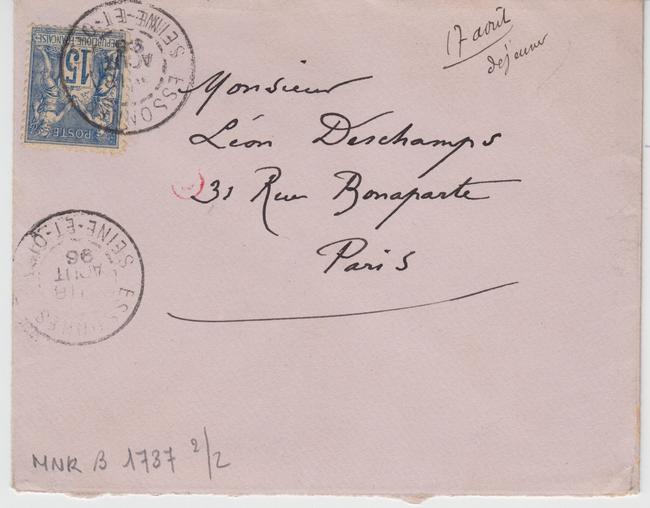 RÉPUBLIQUE FRANÇAISE
15
POSTE
SEINE-ET-O
17 août
déjeuner
Monsieur
Léon Deschamps
31 Rue Bonaparte
Paris
ESSONNES
SEINE-ET-O
18
AOUT
96
MNR B 1737 2/2